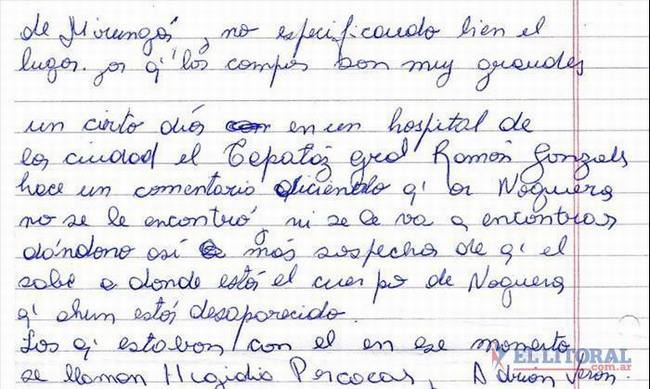 de Mirungá, no especificando bien el
lugar. por q' los campos son muy grandes
un cirto día en un hospital de
la ciudad el Capatáz gral Ramón Gonzales
hace un comentario diciendo q' a Noguera
no se le encontró, ni se le va a encontrar
dándono así más sospecha de q' el
sabe a donde está el cuerpo de Noguera
q' ahun está desaparecido.
Los q' estaban con el en ese momento
se llaman
EL LITORAL
.com.ar